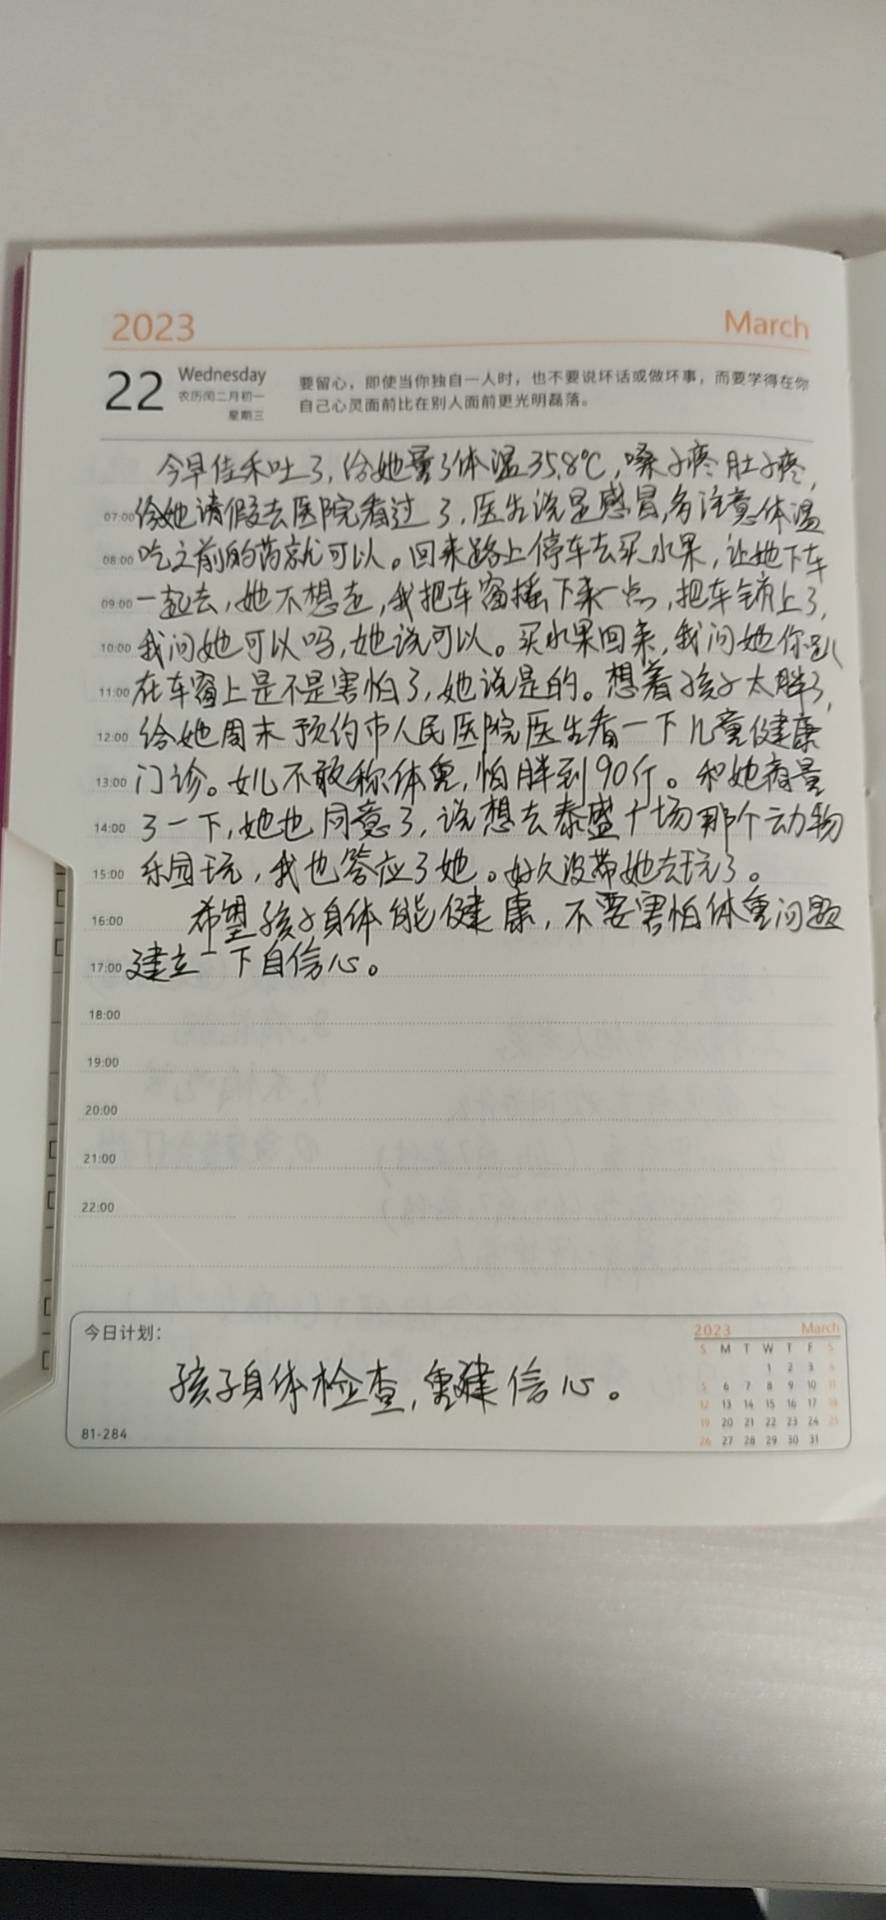 2023 March
22 Wednesday
农历闰二月初一
星期三
要留心，即使当你独自一人时，也不要说坏话或做坏事，而要学得在你
自己心灵面前比在别人面前更光明磊落。
今早佳禾吐了，给她量了体温35.8℃，嗓子疼肚子疼，
07:00 给她请假去医院看过了，医生说是感冒，多注意体温
08:00 吃之前的药就可以。回来路上停车去买水果，让她下车
09:00 一起去，她不想走，我把车窗摇下来一点，把车锁上了，
10:00 我问她可以吗，她说可以。买水果回来，我问她你趴
11:00 在车窗上是不是害怕了，她说是的。想着孩子太胖了，
12:00 给她周末预约市人民医院医生看一下儿童健康
13:00 门诊。女儿不敢称体重，怕胖到90斤。和她商量
14:00 了一下，她也同意了，说想去泰盛广场那个动物
15:00 乐园玩，我也答应了她。好久没带她去玩了。
16:00 希望孩子身体能健康，不要害怕体重问题
17:00 建立一下自信心。
18:00
19:00
20:00
21:00
22:00
今日计划：
孩子身体检查，重建信心。
81-284
2023 March
S M T W T F S
1 2 3 4
5 6 7 8 9 10 11
12 13 14 15 16 17 18
19 20 21 22 23 24 25
26 27 28 29 30 31